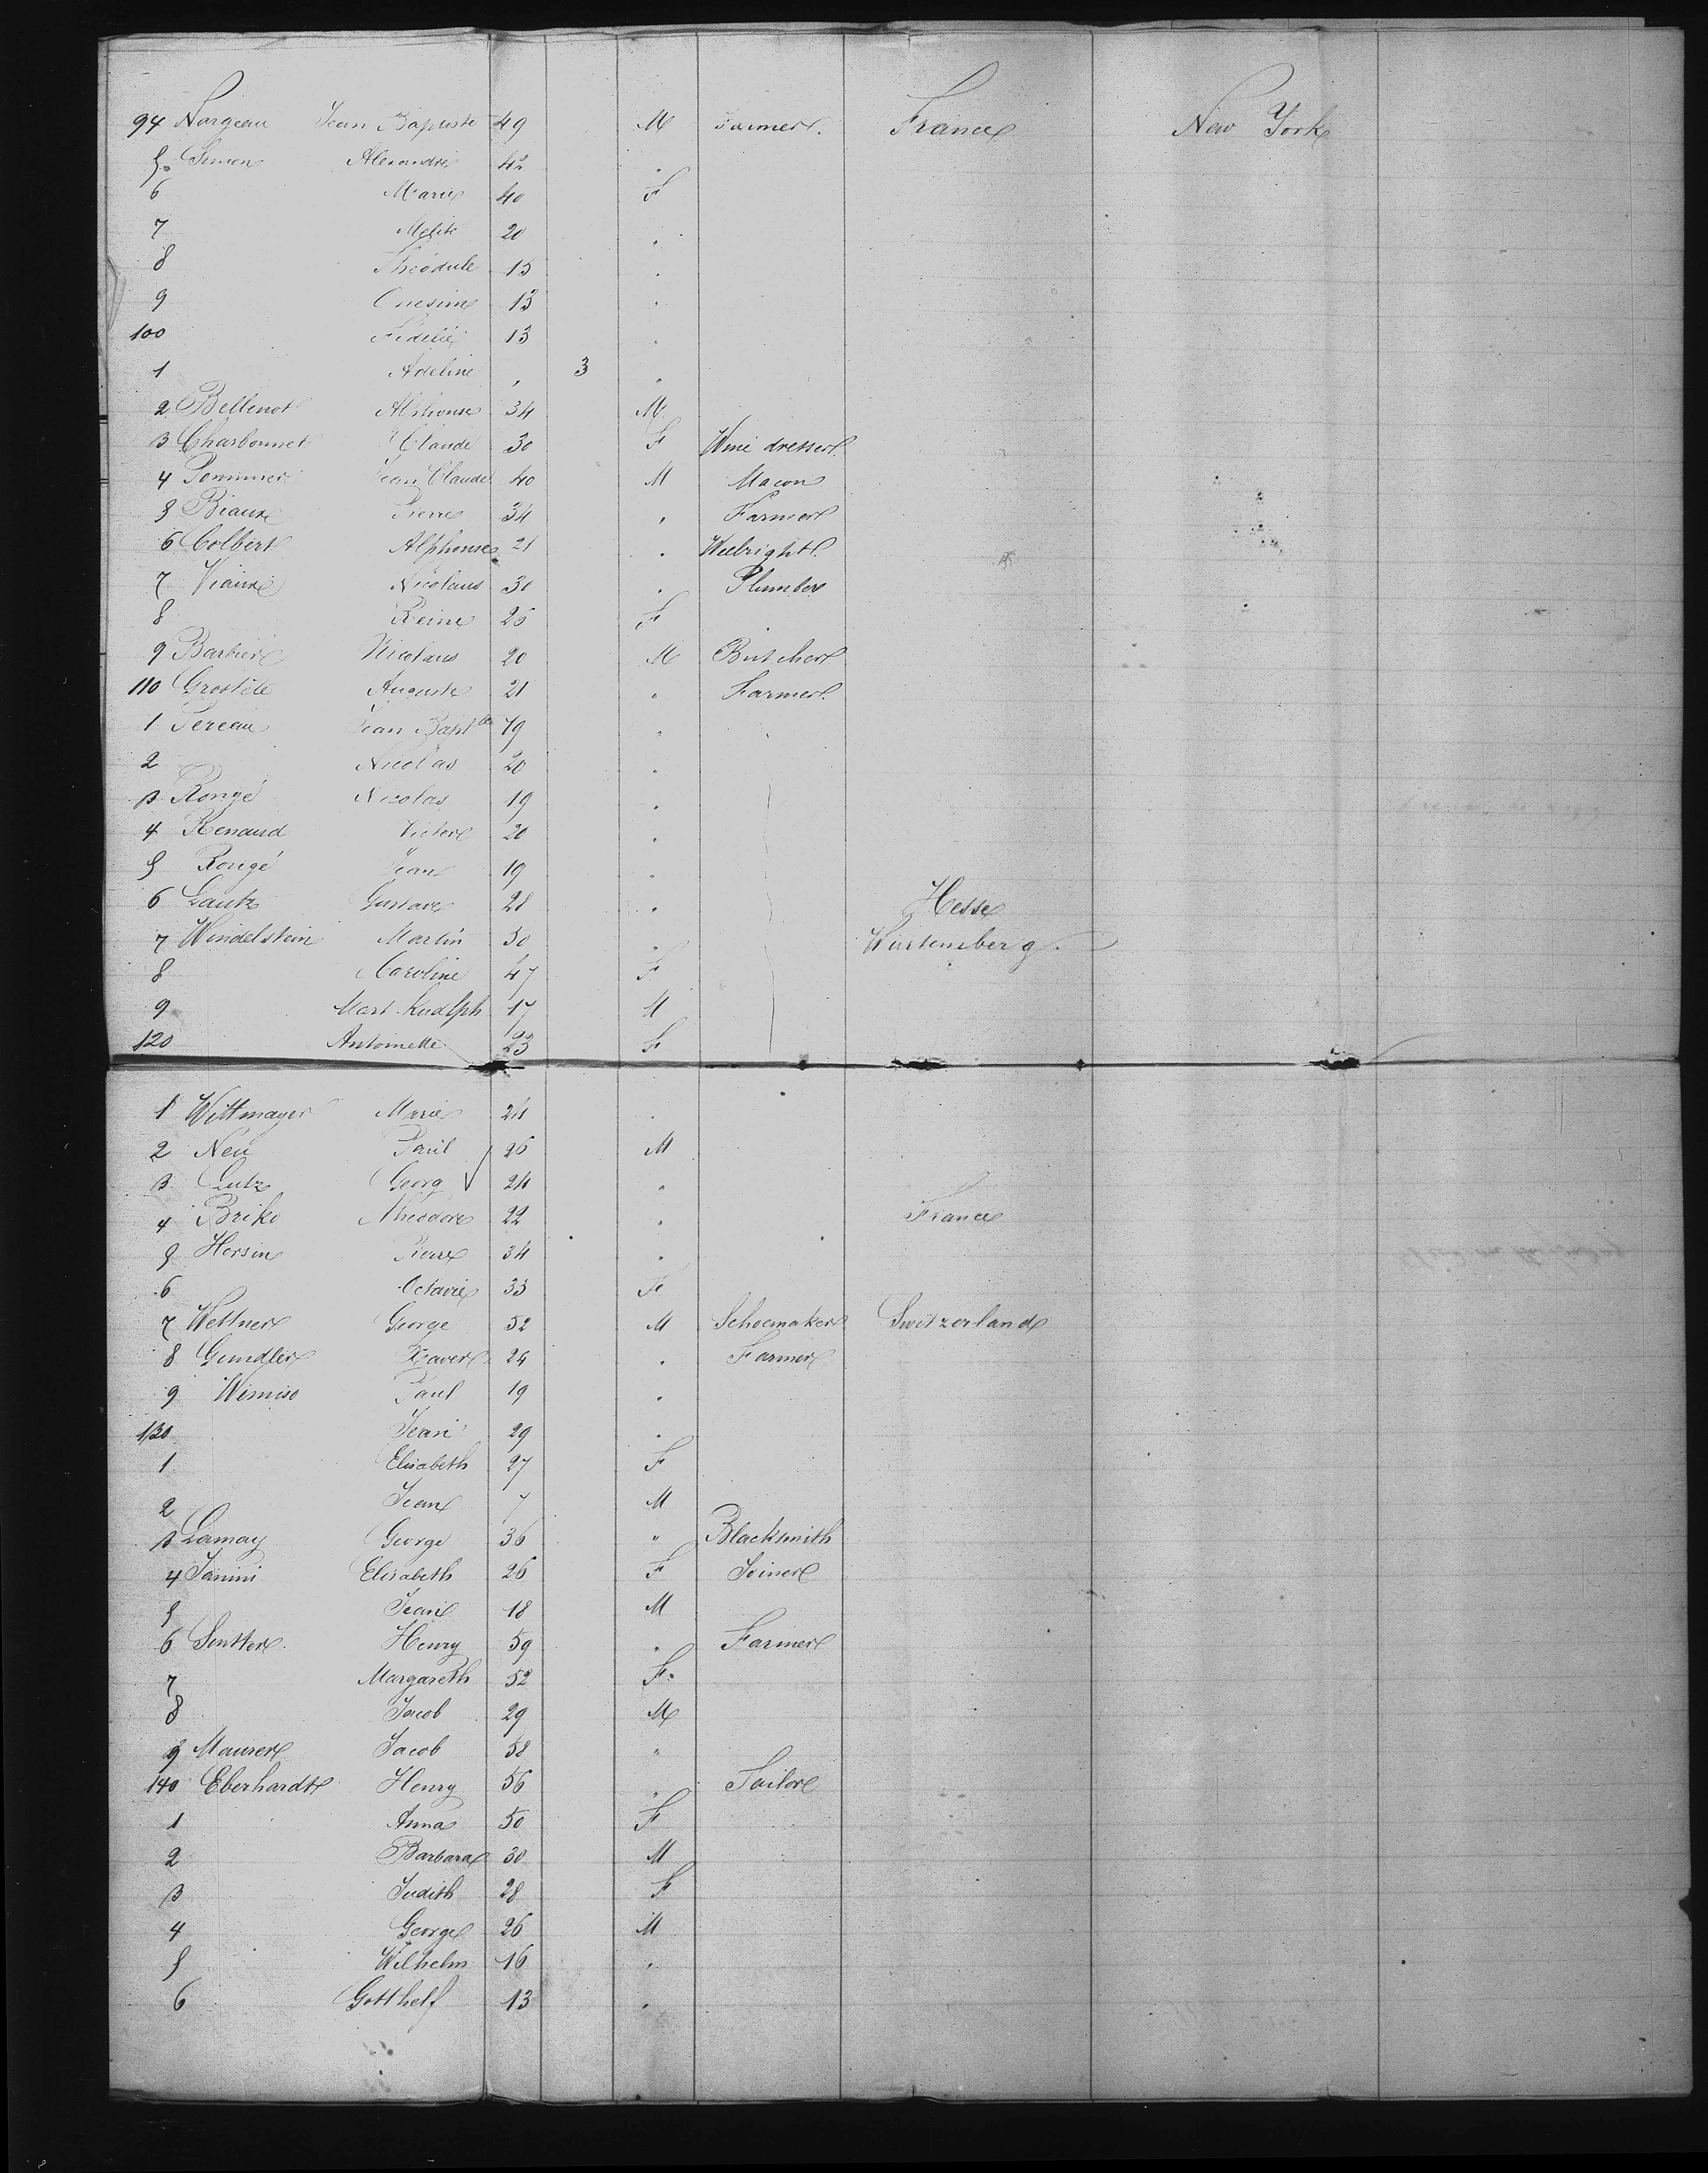 94 Jean Baptiste 49 M Farmer. France New York
5. Simon Alexandre 42 "
6 Marie 40 F
7 20 "
8 Théodule 15 "
9 Onesime 13 "
100 13 "
1 Adeline " 3 "
2 Bellenot Alphonse 34 M
3 Charbonnet Claude 30 F Wine dresser
4 Pommier Jean Claude 40 M Macon
5 Biaux Pierre 34 " Farmer
6 Colbert Alphonse 21 " Weelright
7 Viaux Nicolaus 30 " Plumber
8 Reine 26 F
9 Barbier Nicolaus 20 M Butcher
110 Grostête Auguste 21 " Farmer
1 Pereau Jean Bapt 19 " "
2 Nicolas 20 "
3 Rongé Nicolas 19 "
4 Renaud Victor 20 "
5 Rougé Jean 19 "
6 Lautz Gustave 28 " Hesse
7 Windelstein Martin 30 " Wurtemberg.
8 Caroline 47 F
9 Mart. Rudlph 17 M
120 Antoinette 23 F
1 Wittmayer Marie 24 "
2 Neu Paul 26 M
3 Lutz Georg 24 "
4 Briki Theodore 22 " France
5 Hersin Pierre 34 "
6 Octavie 33 F
7 Wettner George 52 M Schoemaker Switzerland
8 Gundler Xaver 24 " Farmer
9 Paul 19 "
130 Jean 29 "
1 Elisabeth 27 F
2 Jean 7 M
3 Lamay George 36 " Blacksmith
4 Janini Elisabeth 26 F Joiner
5 Jean 18 M
6 Sutter Henry 59 " Farmer
7 Margareth 52 F.
8 Jacob 29 M
9 Maurer Jacob 58 "
140 Eberhardt Henry 56 " Tailor
1 Anna 50 F
2 Barbara 30 M
3 Judith 28 F
4 George 26 M
5 Wilhelm 16 "
6 Gotthelf 13 "